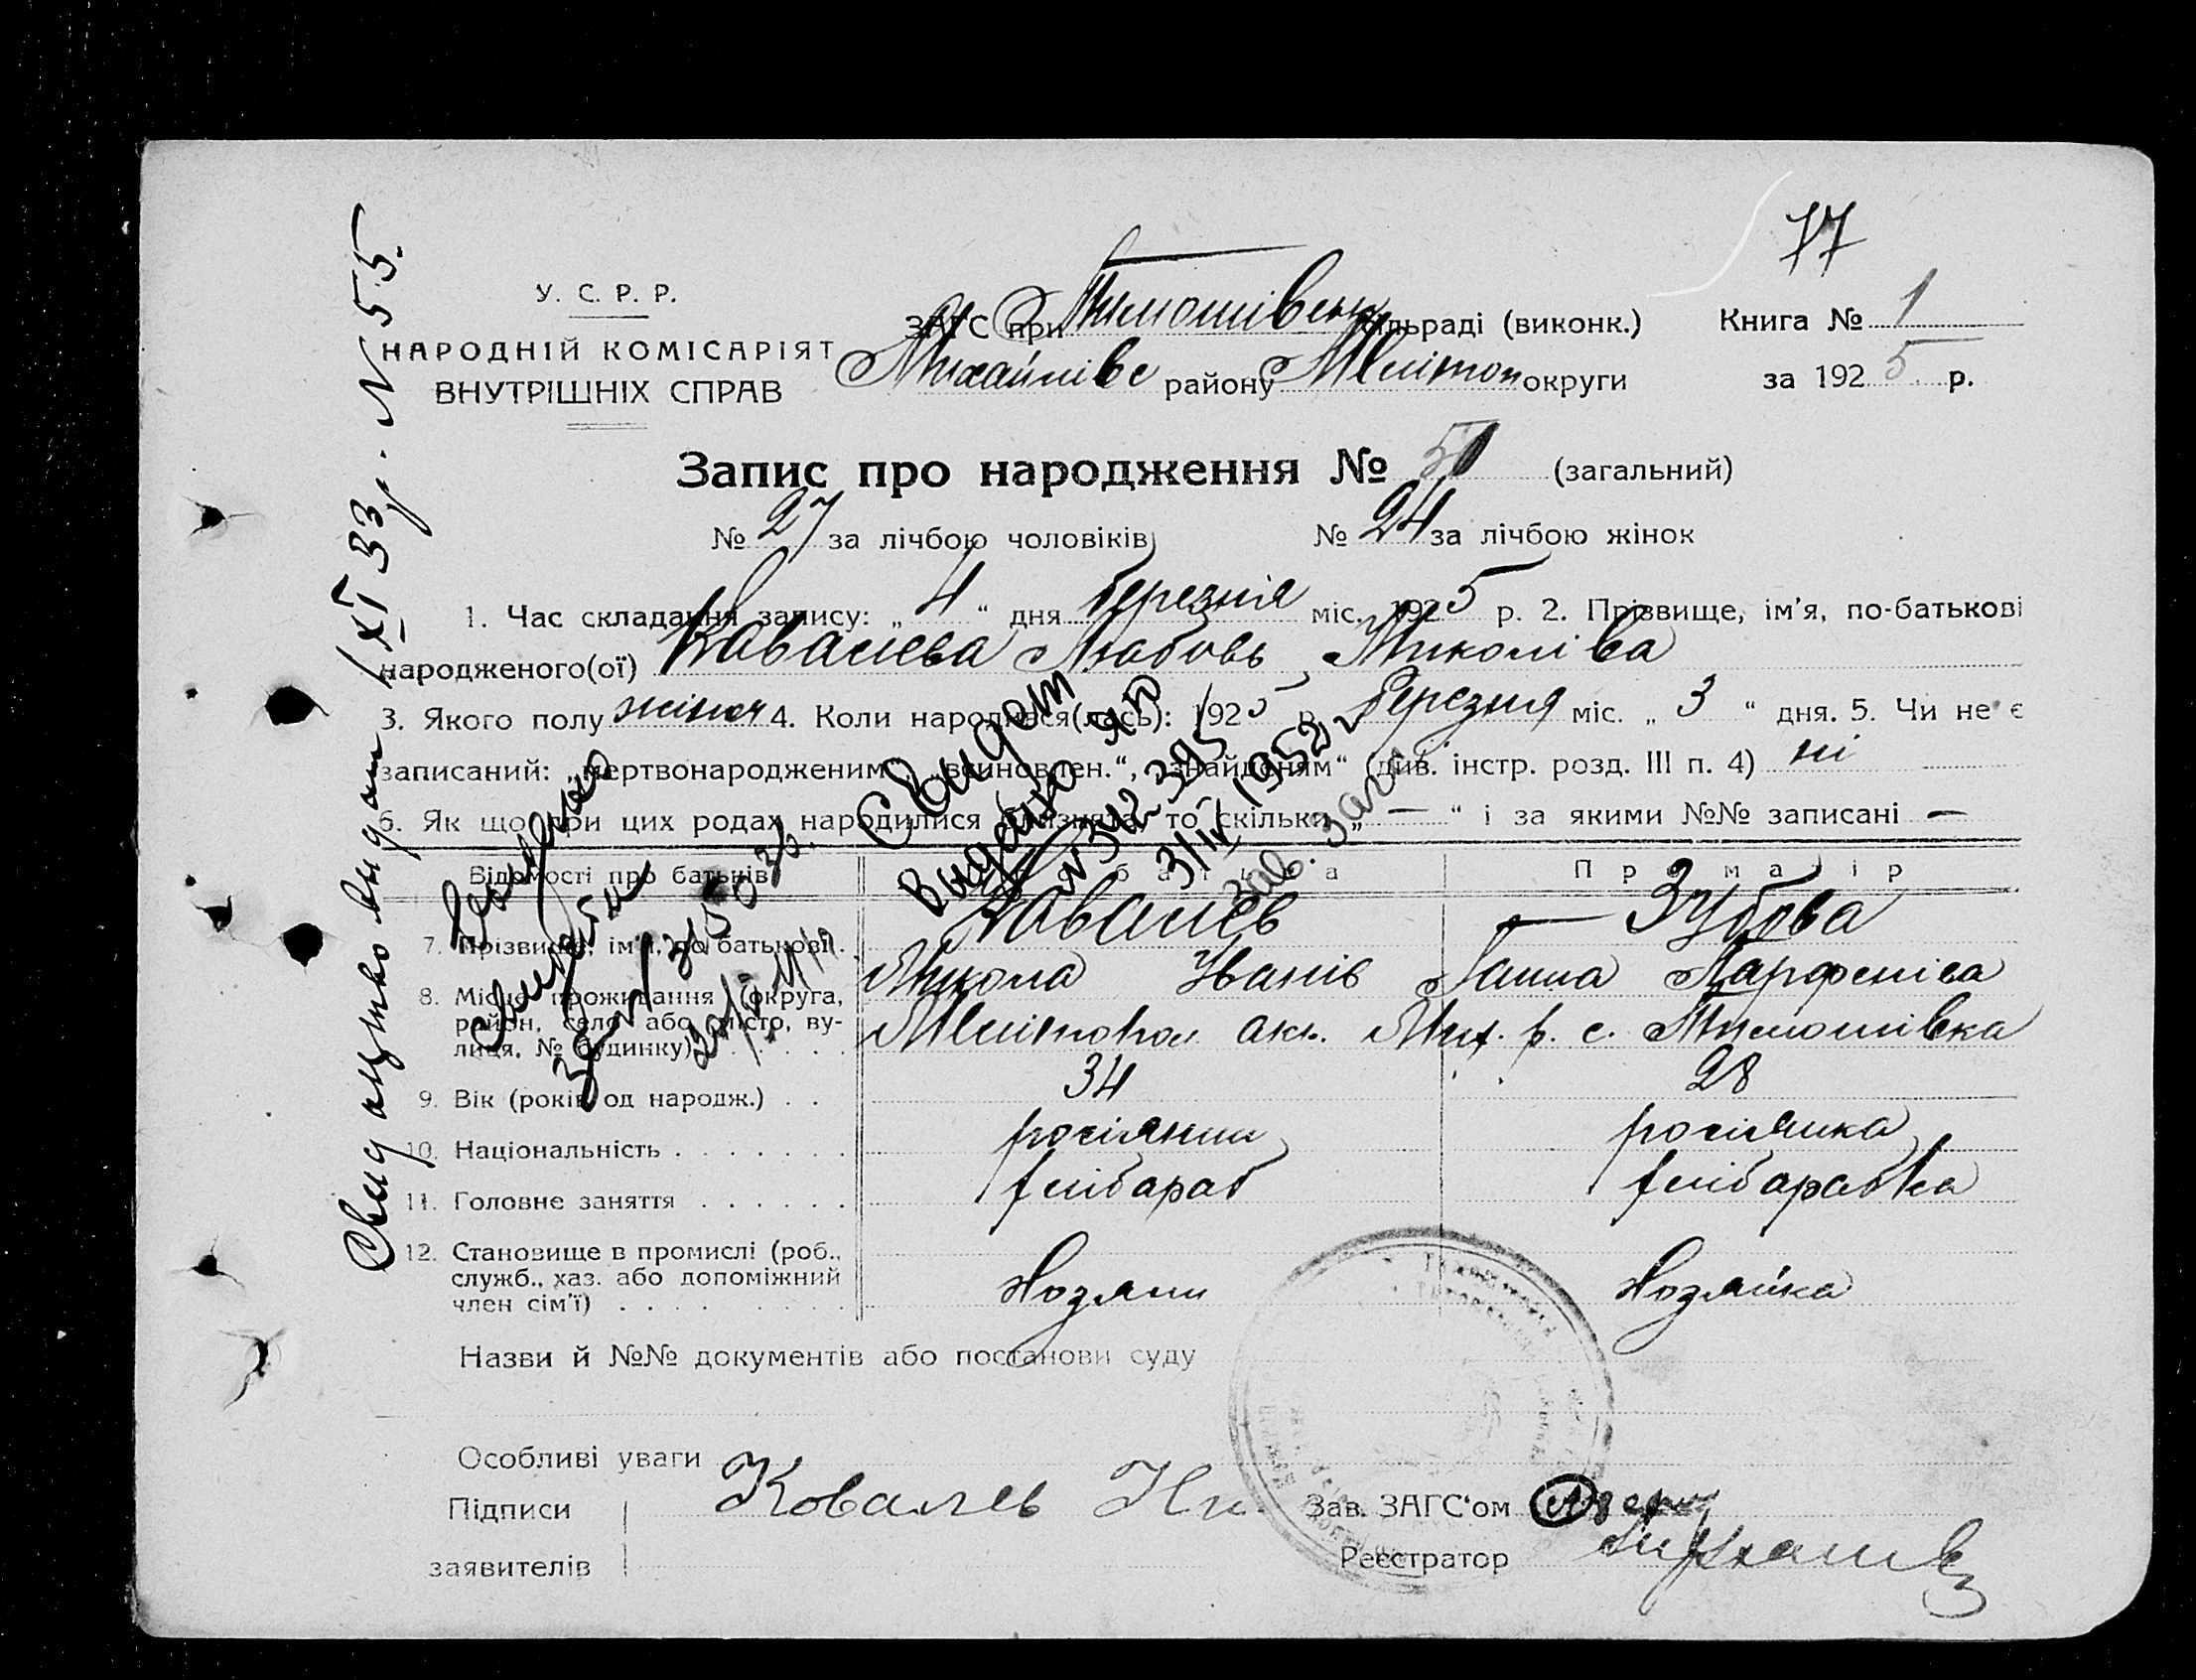 77
У. С. Р. Р.
НАРОДНІЙ КОМІСАРІЯТ
ВНУТРІШНІХ СПРАВ
ЗАГС при Тимошівськ сільраді (виконк.)
Михайлівс району Мелітоп округи
Книга № 1
за 1925 р.
Запис про народження № 51 (загальний)
№ 27 за лічбою чоловіків № 24 за лічбою жінок
1. Час складання запису: „4“ дня березня міс. 1925 р. 2. Прізвище, ім'я, по-батькові
народженого(ої) Ковалева Любовь Миколіва
3. Якого полу жіноч 4. Коли народився(лась): 1925 р. березня міс. „3“ дня. 5. Чи не є
записаний: „мертвонародженим“, „всиновлен.“, „знайденям“ (див. інстр. розд. III п. 4) ні
6. Як що при цих родах народилися близнята, то скільки „—“ і за якими №№ записані —
Відомості про батьків Про батька Про матір
7. Прізвище, ім'я, по батькові . Ковалев Зубова
Микола Іванів Ганна Парфеніва
8. Місце проживання (округа,
район, село або місто, ву-
лиця, № будинку) . . . . Мелітопол окр. Мих. р. с. Тимошівка
9. Вік (років од народж.) . . 34 28
10. Національність . . . . . . . росіянин росіянка
11. Головне заняття . . . . . . хлібароб хлібаробка
12. Становище в промислі (роб.,
служб., хаз. або допоміжний
член сім'ї) . . . . Хозяин Хозяйка
Назви й №№ документів або постанови суду
Особливі уваги
Підписи
заявителів
Ковалев Ни.
Зав. ЗАГС'ом
Реєстратор
Свидацтво видат 1/XI 33 р. N 55.
Свидот
Видано ЯП
N 342395
3/IV 1952 г
Зав. Загс